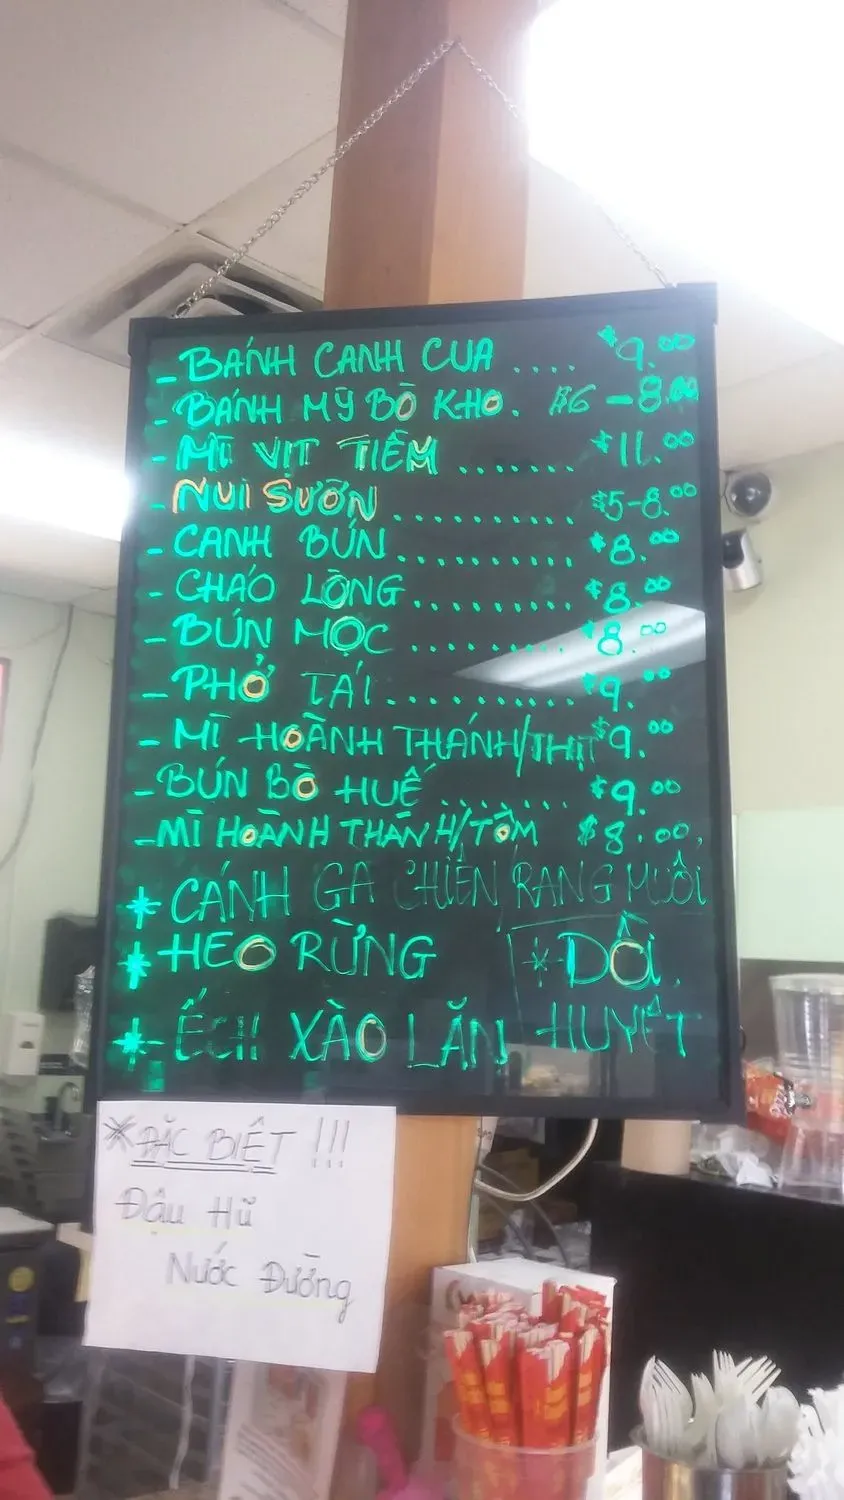 - BÁNH CANH CUA .... $9.00
- BÁNH MỲ BÒ KHO. $6 - 8.00
- MÌ VỊT TIỀM ....... $11.00
- NUI SƯỜN .......... $5-8.00
- CANH BÚN .......... $8.00
- CHÁO LÒNG ......... $8.00
- BÚN MỌC .......... $8.00
- PHỞ TÁI .......... $9.00
- MÌ HOÀNH THÁNH/THỊT $9.00
- BÚN BÒ HUẾ ....... $9.00
- MÌ HOÀNH THÁNH/TÔM $8.00
* CÁNH GÀ CHIÊN RANG MUỐI
* HEO RỪNG
* DỒI HUYẾT
* ẾCH XÀO LĂN
* ĐẶC BIỆT !!!
Đậu Hũ
Nước Đường